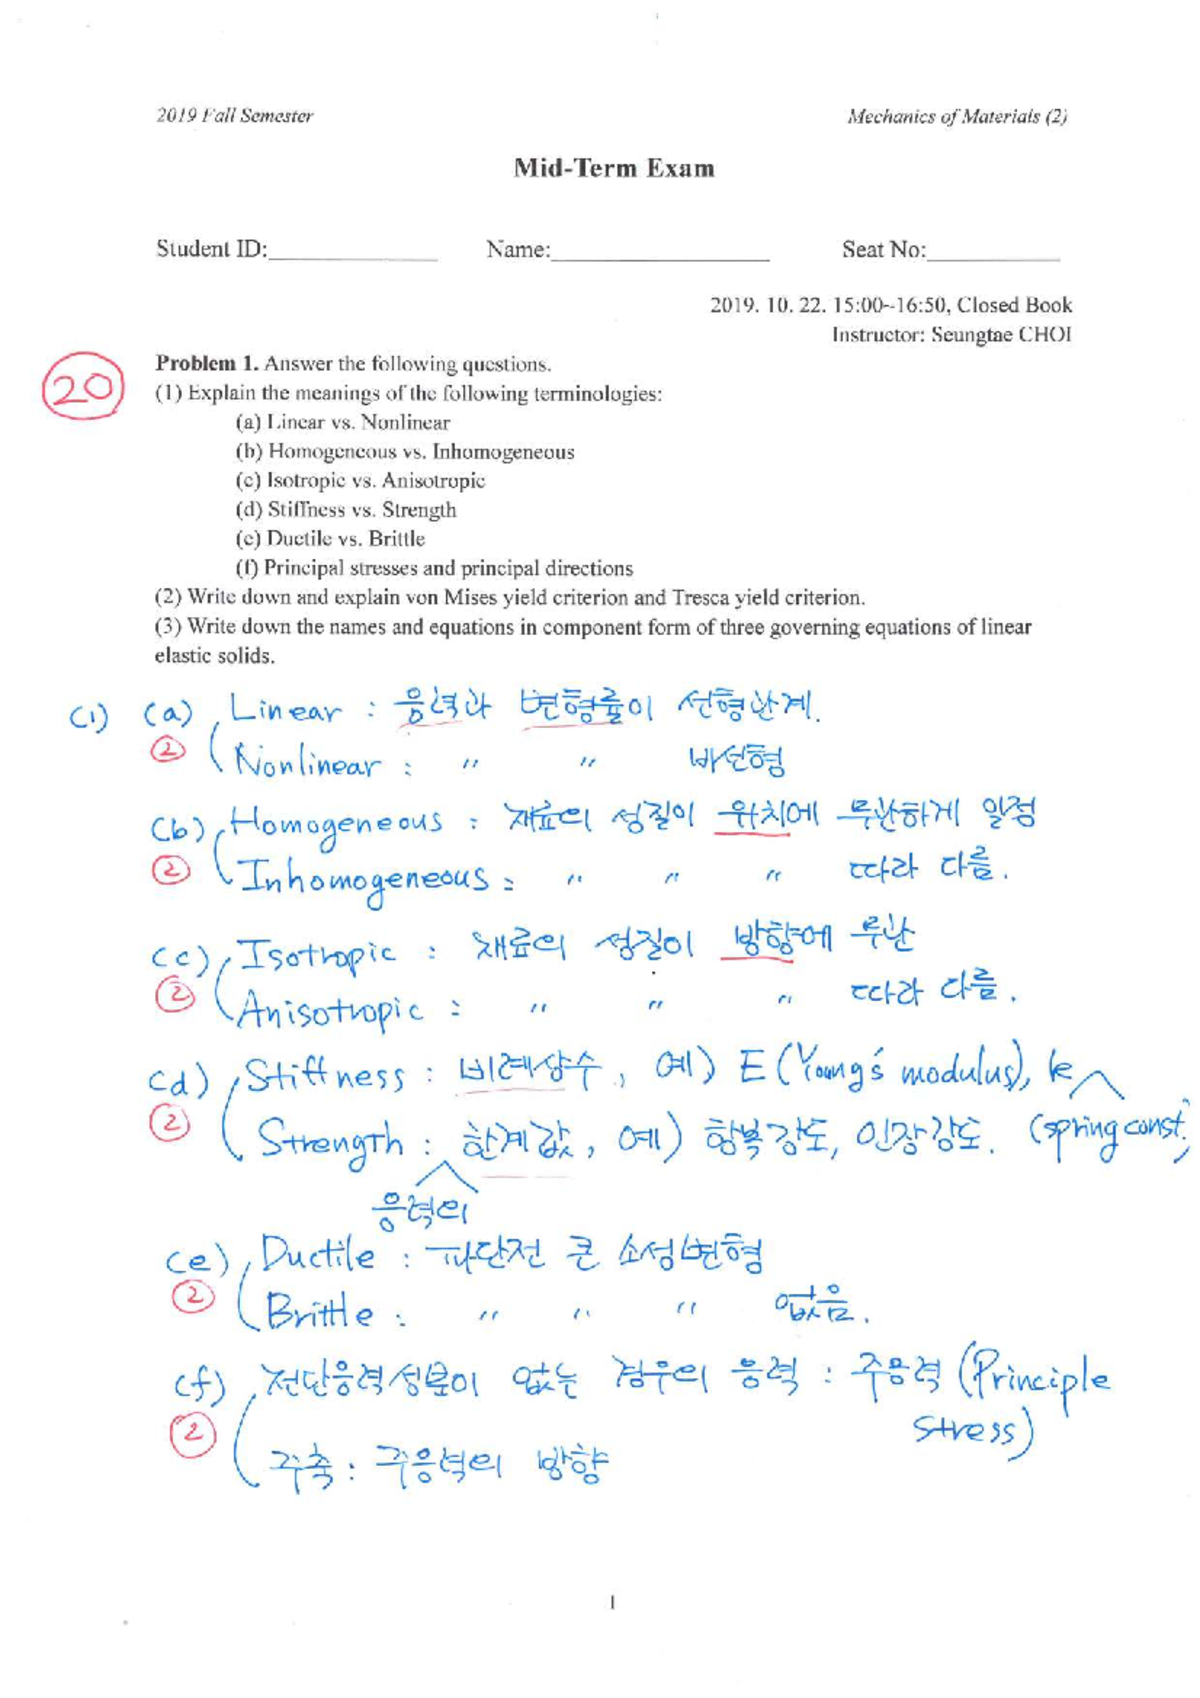 2019 Fall Semester Mechanics of Materials (2)
Mid-Term Exam
Student ID: Name: Seat No:
2019. 10. 22. 15:00~16:50, Closed Book
Instructor: Seungtae CHOI
20
Problem 1. Answer the following questions.
(1) Explain the meanings of the following terminologies:
(a) Linear vs. Nonlinear
(b) Homogeneous vs. Inhomogeneous
(c) Isotropic vs. Anisotropic
(d) Stiffness vs. Strength
(e) Ductile vs. Brittle
(f) Principal stresses and principal directions
(2) Write down and explain von Mises yield criterion and Tresca yield criterion.
(3) Write down the names and equations in component form of three governing equations of linear
elastic solids.
(1) (a) Linear : 응력과 변형률이 선형관계.
② Nonlinear : " " 비선형
(b) Homogeneous : 재료의 성질이 위치에 무관하게 일정
② Inhomogeneous : " " " 따라 다름.
(c) Isotropic : 재료의 성질이 방향에 무관
② Anisotropic : " " " 따라 다름.
(d) Stiffness : 비례상수, 예) E (Young's modulus), k
② Strength : 한계값, 예) 항복강도, 인장강도. (spring const.)
응력의
(e) Ductile : 파단전 큰 소성변형
② Brittle : " " " 없음.
(f) 전단응력성분이 없는 경우의 응력 : 주응력 (Principle
stress)
② 주축 : 주응력의 방향
1